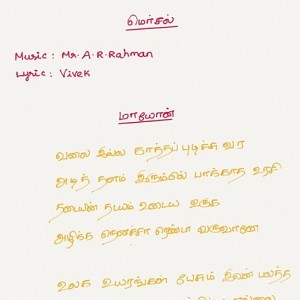 மெர்சல்
Music : Mr. A. R. Rahman
Lyric : Vivek
மாயோன்
வலை இல்ல காத்தப் புடிச்சு வர
அடித் தளம் இரும்பில் பாக்காத உறுதி
உடைய உருக
அழிக்க நெனச்சா ரெண்டா வருவானே
உலக உயரங்கள் பேசும் இவன்